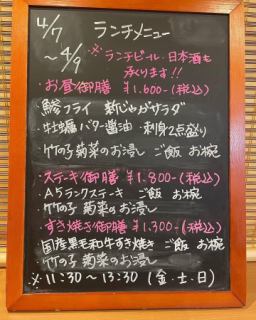 4/7 ランチメニュー
～4/9 ※ランチビール・日本酒も
承ります!!
・お昼御膳 ¥1.600-(税込)
・鯵フライ 新じゃがサラダ
・牡蠣バター醤油・刺身2点盛り
・竹の子 菊菜のお浸し ご飯 お椀
・ステーキ御膳 ¥1.800-(税込)
・A5ランクステーキ ご飯 お椀
竹の子 菊菜のお浸し
・すき焼き御膳 ¥1.300-(税込)
国産黒毛和牛すき焼き ご飯 お椀
・竹の子 菊菜のお浸し
※11:30～13:30 (金・土・日)